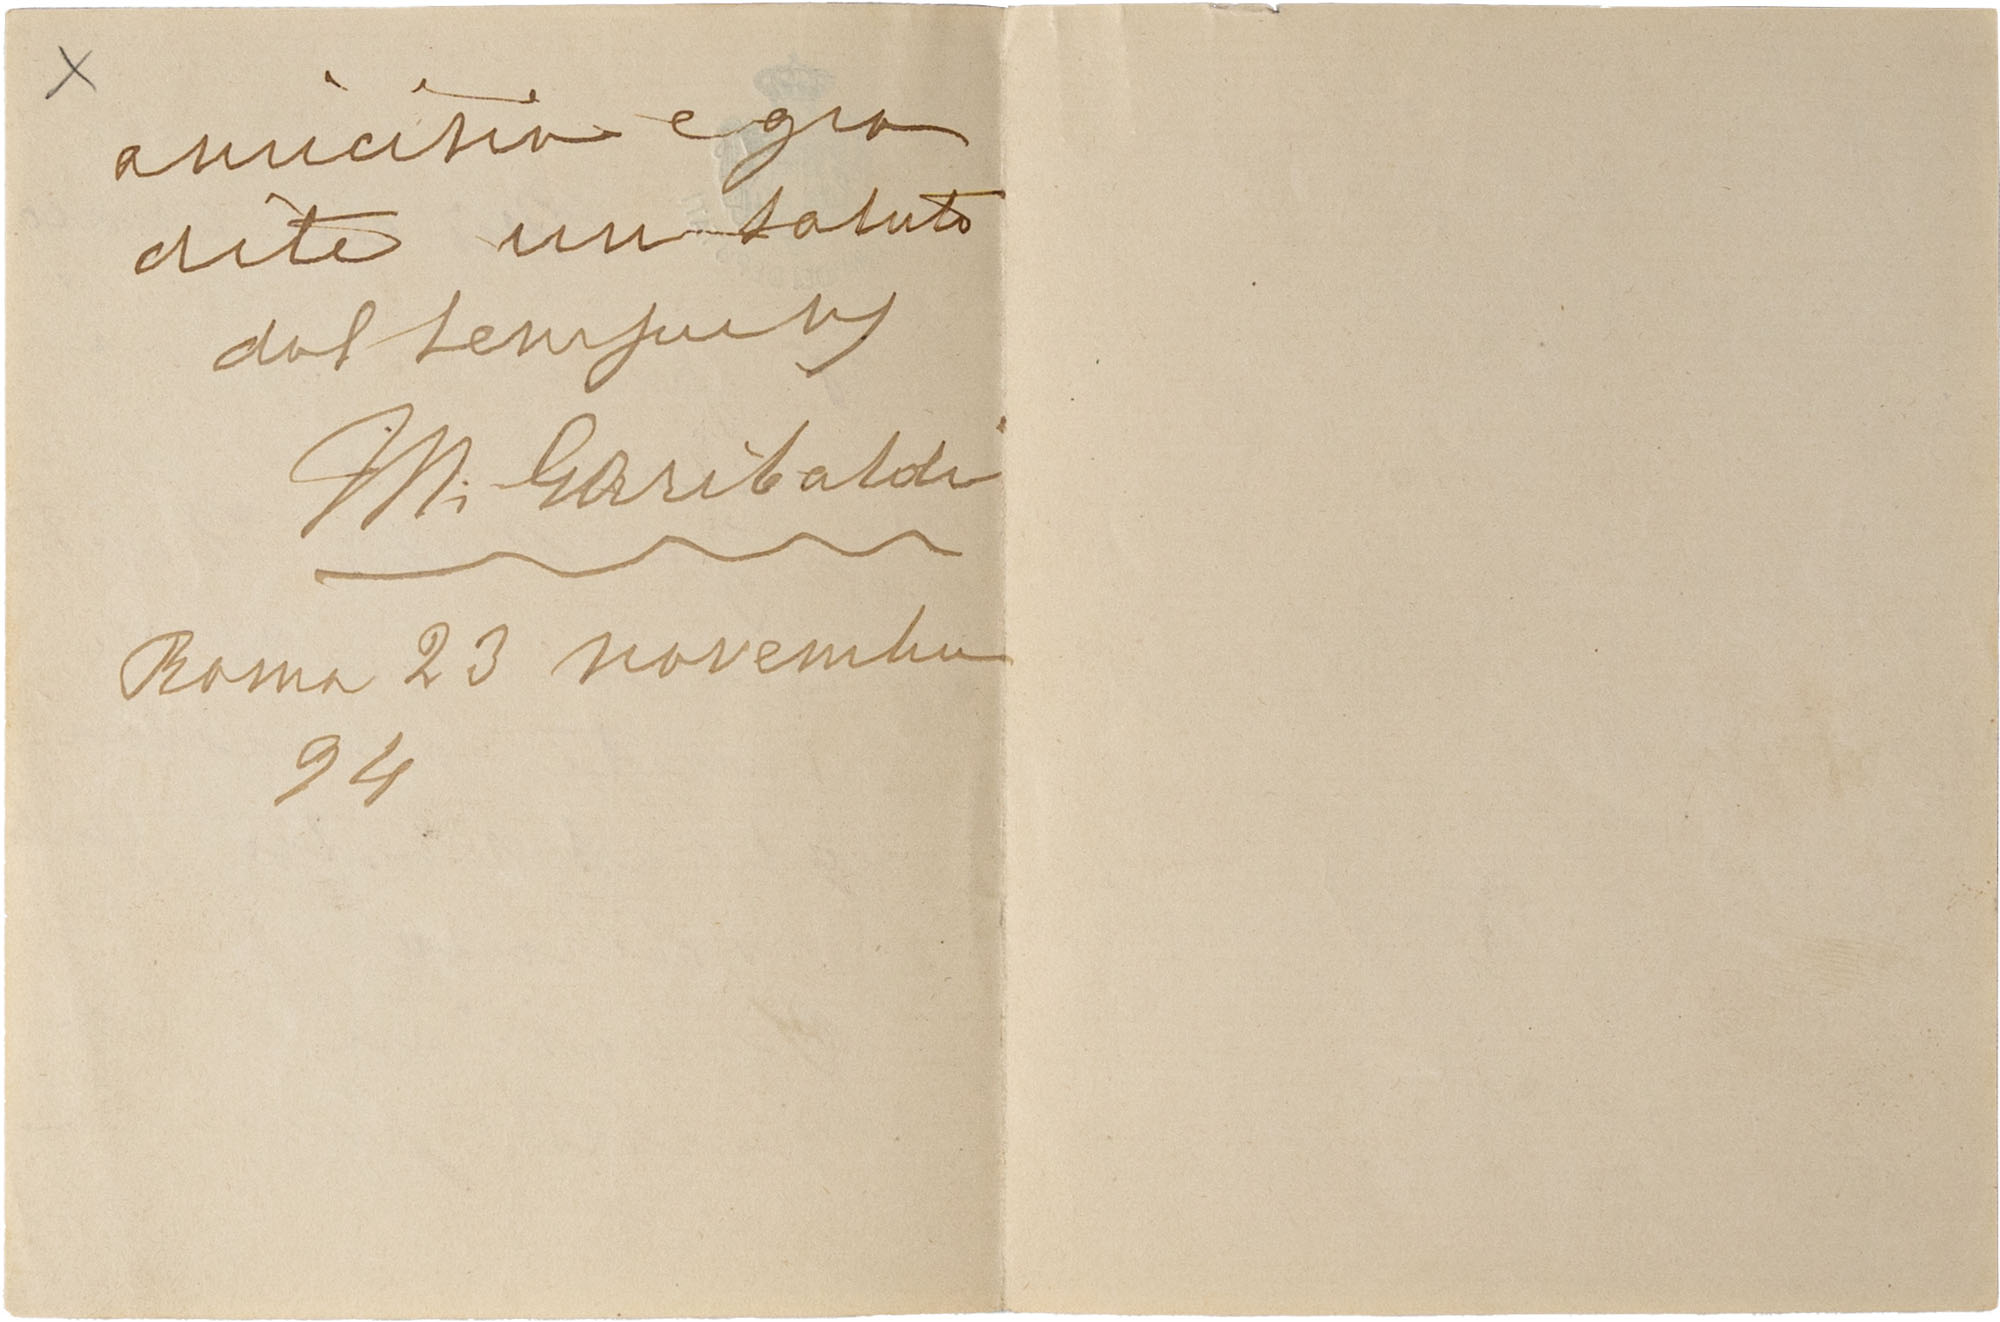 X
amicizia e gra
dite un saluto
dal sempre vs
M. Garibaldi
Roma 23 novembre
94